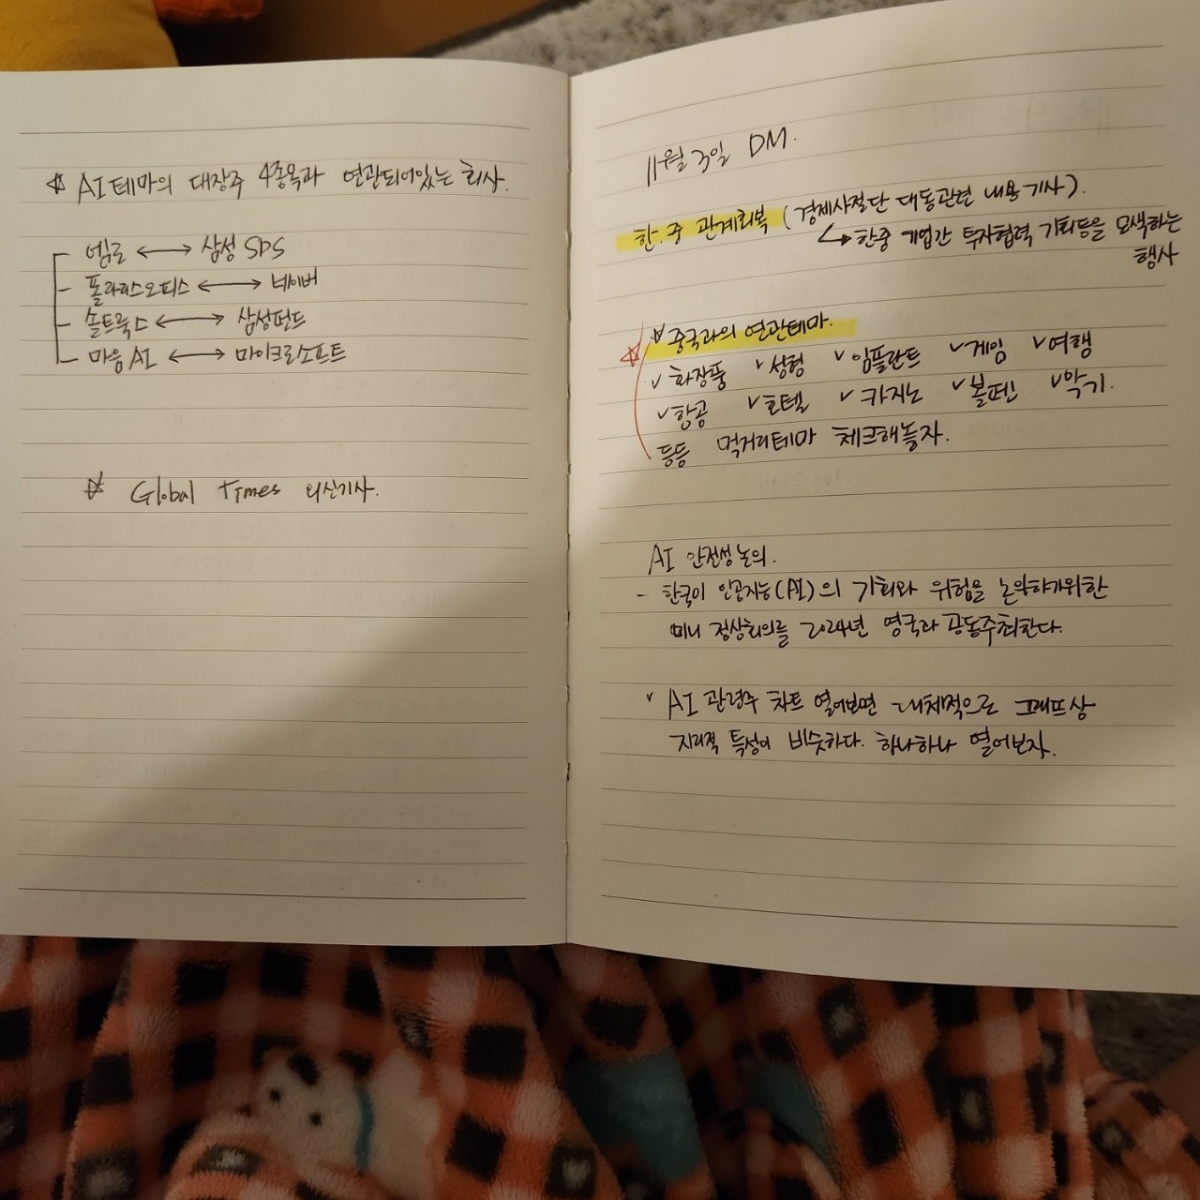 ☆ AI 테마의 대장주 4종목과 연관되어있는 회사.
엠로 ↔ 삼성 SDS
폴라리스오피스 ↔ 네이버
솔트룩스 ↔ 삼성펀드
마음AI ↔ 마이크로소프트
☆ Global Times 외신기사.
11월 3일 DM.
한.중 관계회복 (경제사절단 대동관련 내용기사).
↳ 한중 기업간 투자협력 기회등을 모색하는
행사
☆ 중국과의 연관테마.
✓ 화장품 ✓ 성형 ✓ 임플란트 ✓ 게임 ✓ 여행
✓ 항공 ✓ 호텔 ✓ 카지노 ✓ 볼펜 ✓ 악기.
등등 먹거리테마 체크해놓자.
AI 안전성 논의.
- 한국이 인공지능(AI)의 기회와 위험을 논의하기위한
미니 정상회의를 2024년 영국과 공동주최한다.
✓ AI 관련주 차트 열어보면 대체적으로 그래프상
지리적 특성이 비슷하다. 하나하나 열어보자.